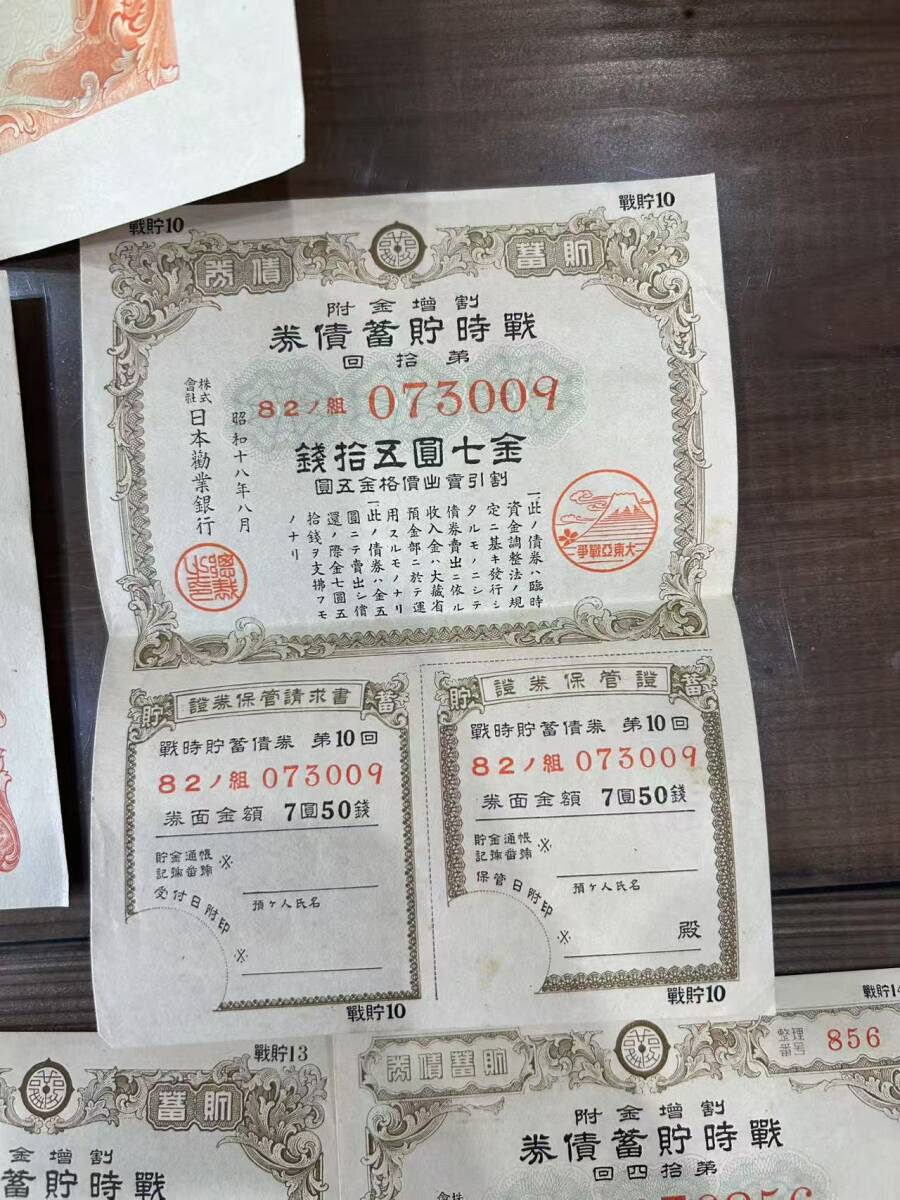 戰貯10
戰貯10
貯蓄債券
割增金附
戰時貯蓄債券
第拾回
82ノ組 073009
金七圓五拾錢
割引賣出價格金五圓
大東亞戰爭
一、此ノ債券ハ臨時
資金調整法ノ規
定ニ基キ發行シ
タルモノニシテ
債券賣出ニ依ル
收入金ハ大藏省
預金部ニ於テ運
用スルモノナリ
一、此ノ債券ハ金五
圓ニテ賣出シ償
還ノ際金七圓五
拾錢ヲ支拂フモ
ノナリ
昭和十八年八月
株式會社日本勸業銀行
總裁之印
貯蓄
證券保管請求書
戰時貯蓄債券 第10回
82ノ組 073009
券面金額 7圓50錢
貯金通帳
記號番號 ※
預ケ人氏名
受付日附印
※
戰貯10
貯蓄
證券保管證
戰時貯蓄債券 第10回
82ノ組 073009
券面金額 7圓50錢
貯金通帳
記號番號 ※
預ケ人氏名
保管日附印
※
殿
戰貯10
戰貯13
貯蓄
割增金
戰時貯蓄
戰貯14
整理番号 856
貯蓄債券
割增金附
戰時貯蓄債券
第拾四回